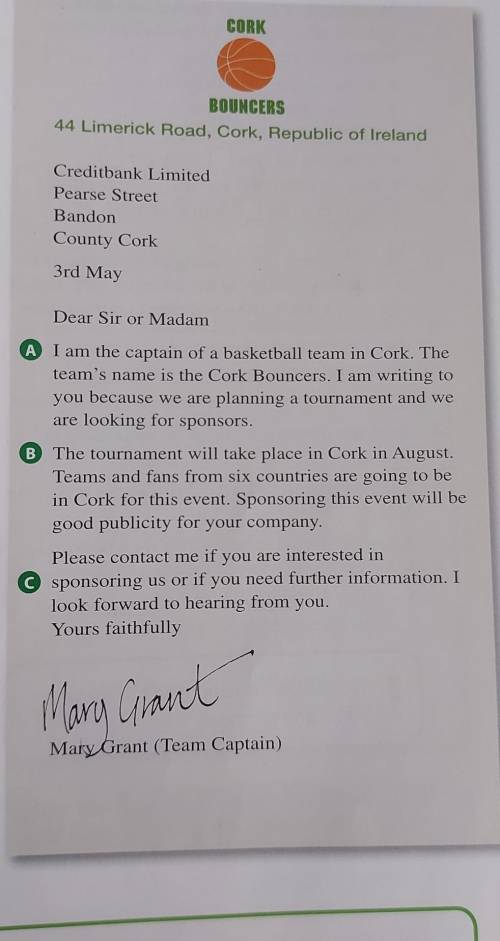 CORK
BOUNCERS
44 Limerick Road, Cork, Republic of Ireland
Creditbank Limited
Pearse Street
Bandon
County Cork
3rd May
Dear Sir or Madam
A I am the captain of a basketball team in Cork. The
team's name is the Cork Bouncers. I am writing to
you because we are planning a tournament and we
are looking for sponsors.
B The tournament will take place in Cork in August.
Teams and fans from six countries are going to be
in Cork for this event. Sponsoring this event will be
good publicity for your company.
Please contact me if you are interested in
C sponsoring us or if you need further information. I
look forward to hearing from you.
Yours faithfully
Mary Grant
Mary Grant (Team Captain)